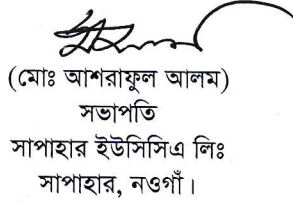 (মোঃ আশরাফুল আলম)
সভাপতি
সাপাহার ইউসিসিএ লিঃ
সাপাহার, নওগাঁ।